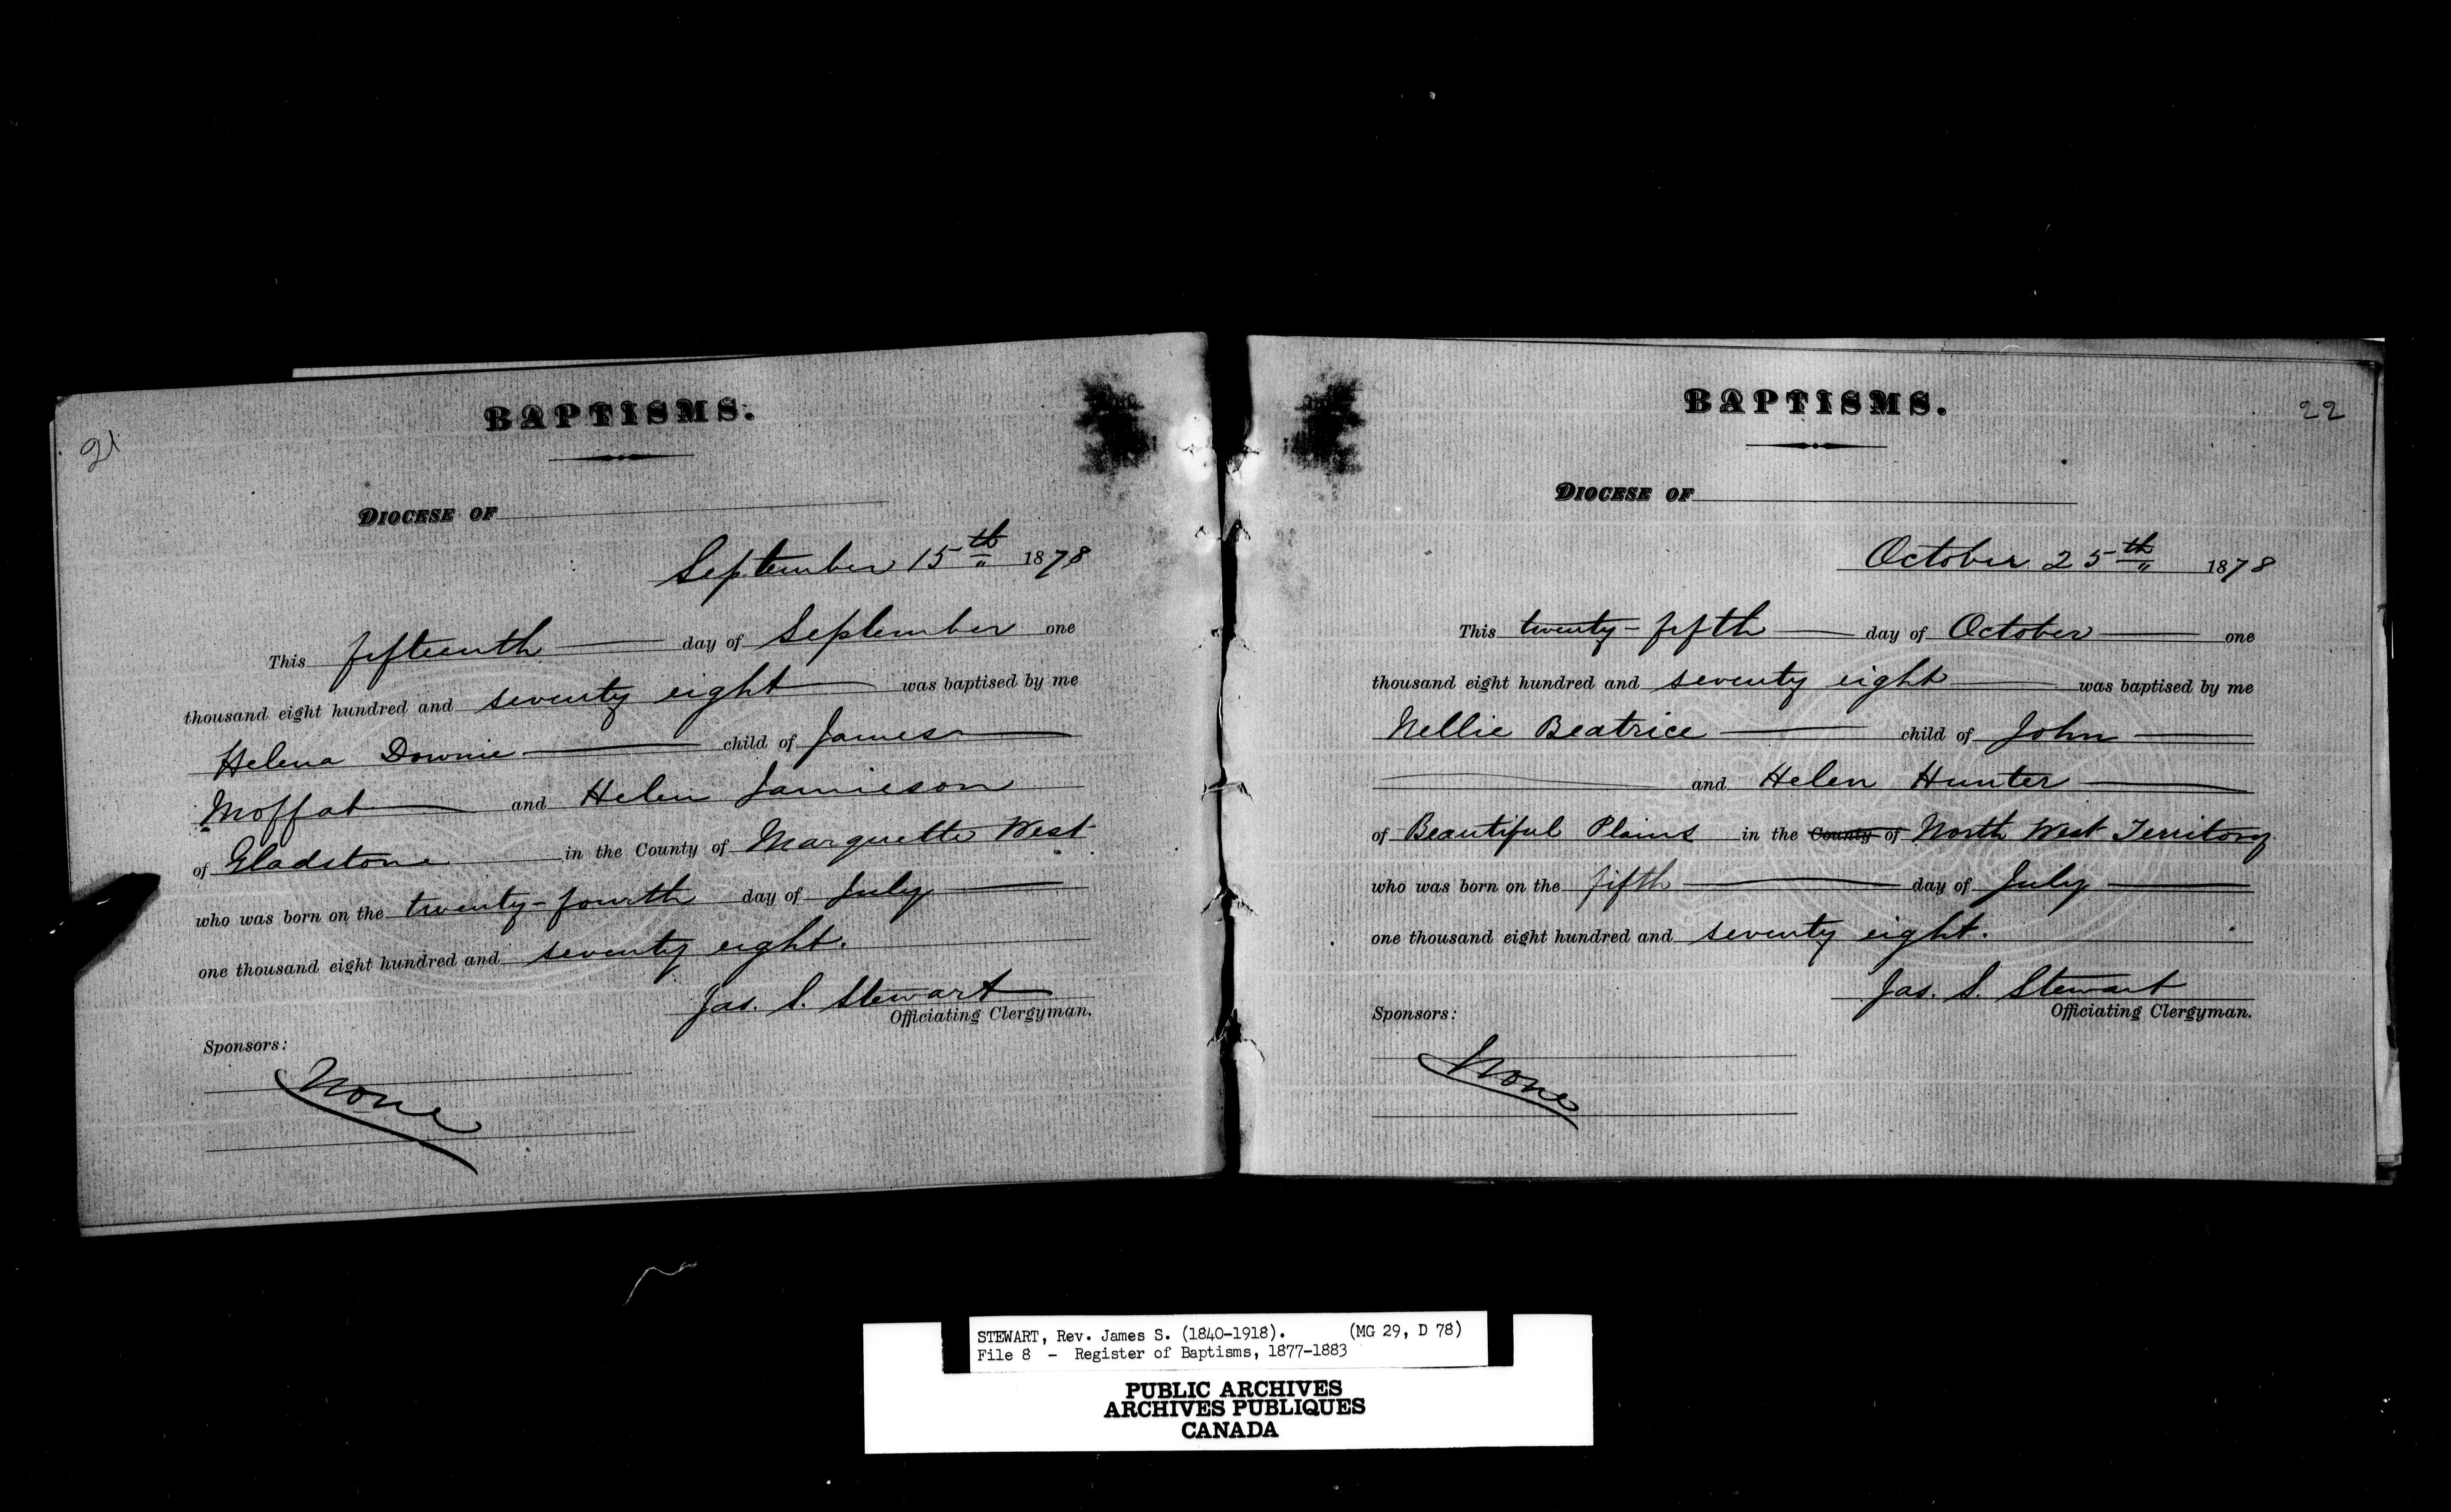 21
BAPTISMS.
DIOCESE OF
September 15th 1878
This fifteenth day of September one
thousand eight hundred and seventy eight was baptised by me
Helena Downie child of James
Moffat and Helen Jamieson
of Gladstone in the County of Marquette West
who was born on the twenty-fourth day of July
one thousand eight hundred and seventy eight.
Jas. S. Stewart
Officiating Clergyman.
Sponsors:
None
22
BAPTISMS.
DIOCESE OF
October 25th 1878
This twenty-fifth day of October one
thousand eight hundred and seventy eight was baptised by me
Nellie Beatrice child of John
and Helen Hunter
of Beautiful Plains in the County of North West Territory
who was born on the fifth day of July
one thousand eight hundred and seventy eight.
Jas. S. Stewart
Officiating Clergyman.
Sponsors:
None
STEWART, Rev. James S. (1840-1918). (MG 29, D 78)
File 8 - Register of Baptisms, 1877-1883
PUBLIC ARCHIVES
ARCHIVES PUBLIQUES
CANADA